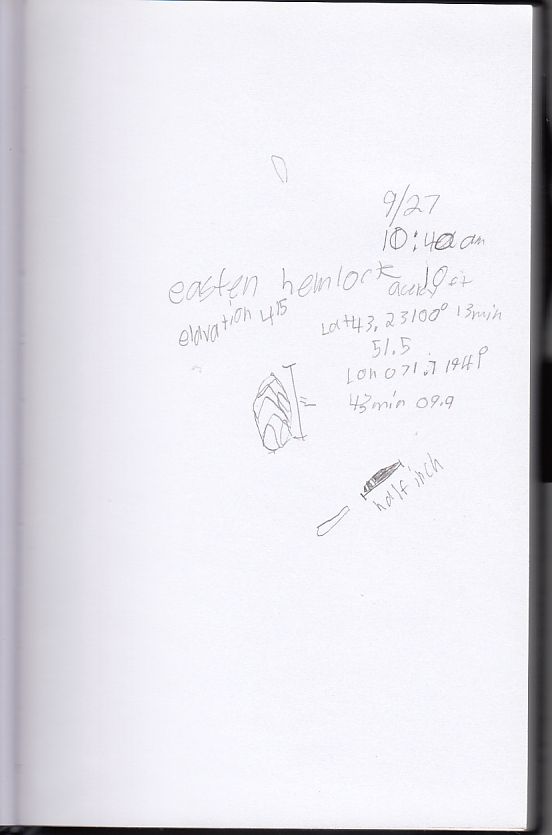 9/27
10:40 am
easten hemlock
10 ft
elavation 415
Lat 43.23100° 13min
51.5
Lon 071.71941°
43min 09.9
half inch